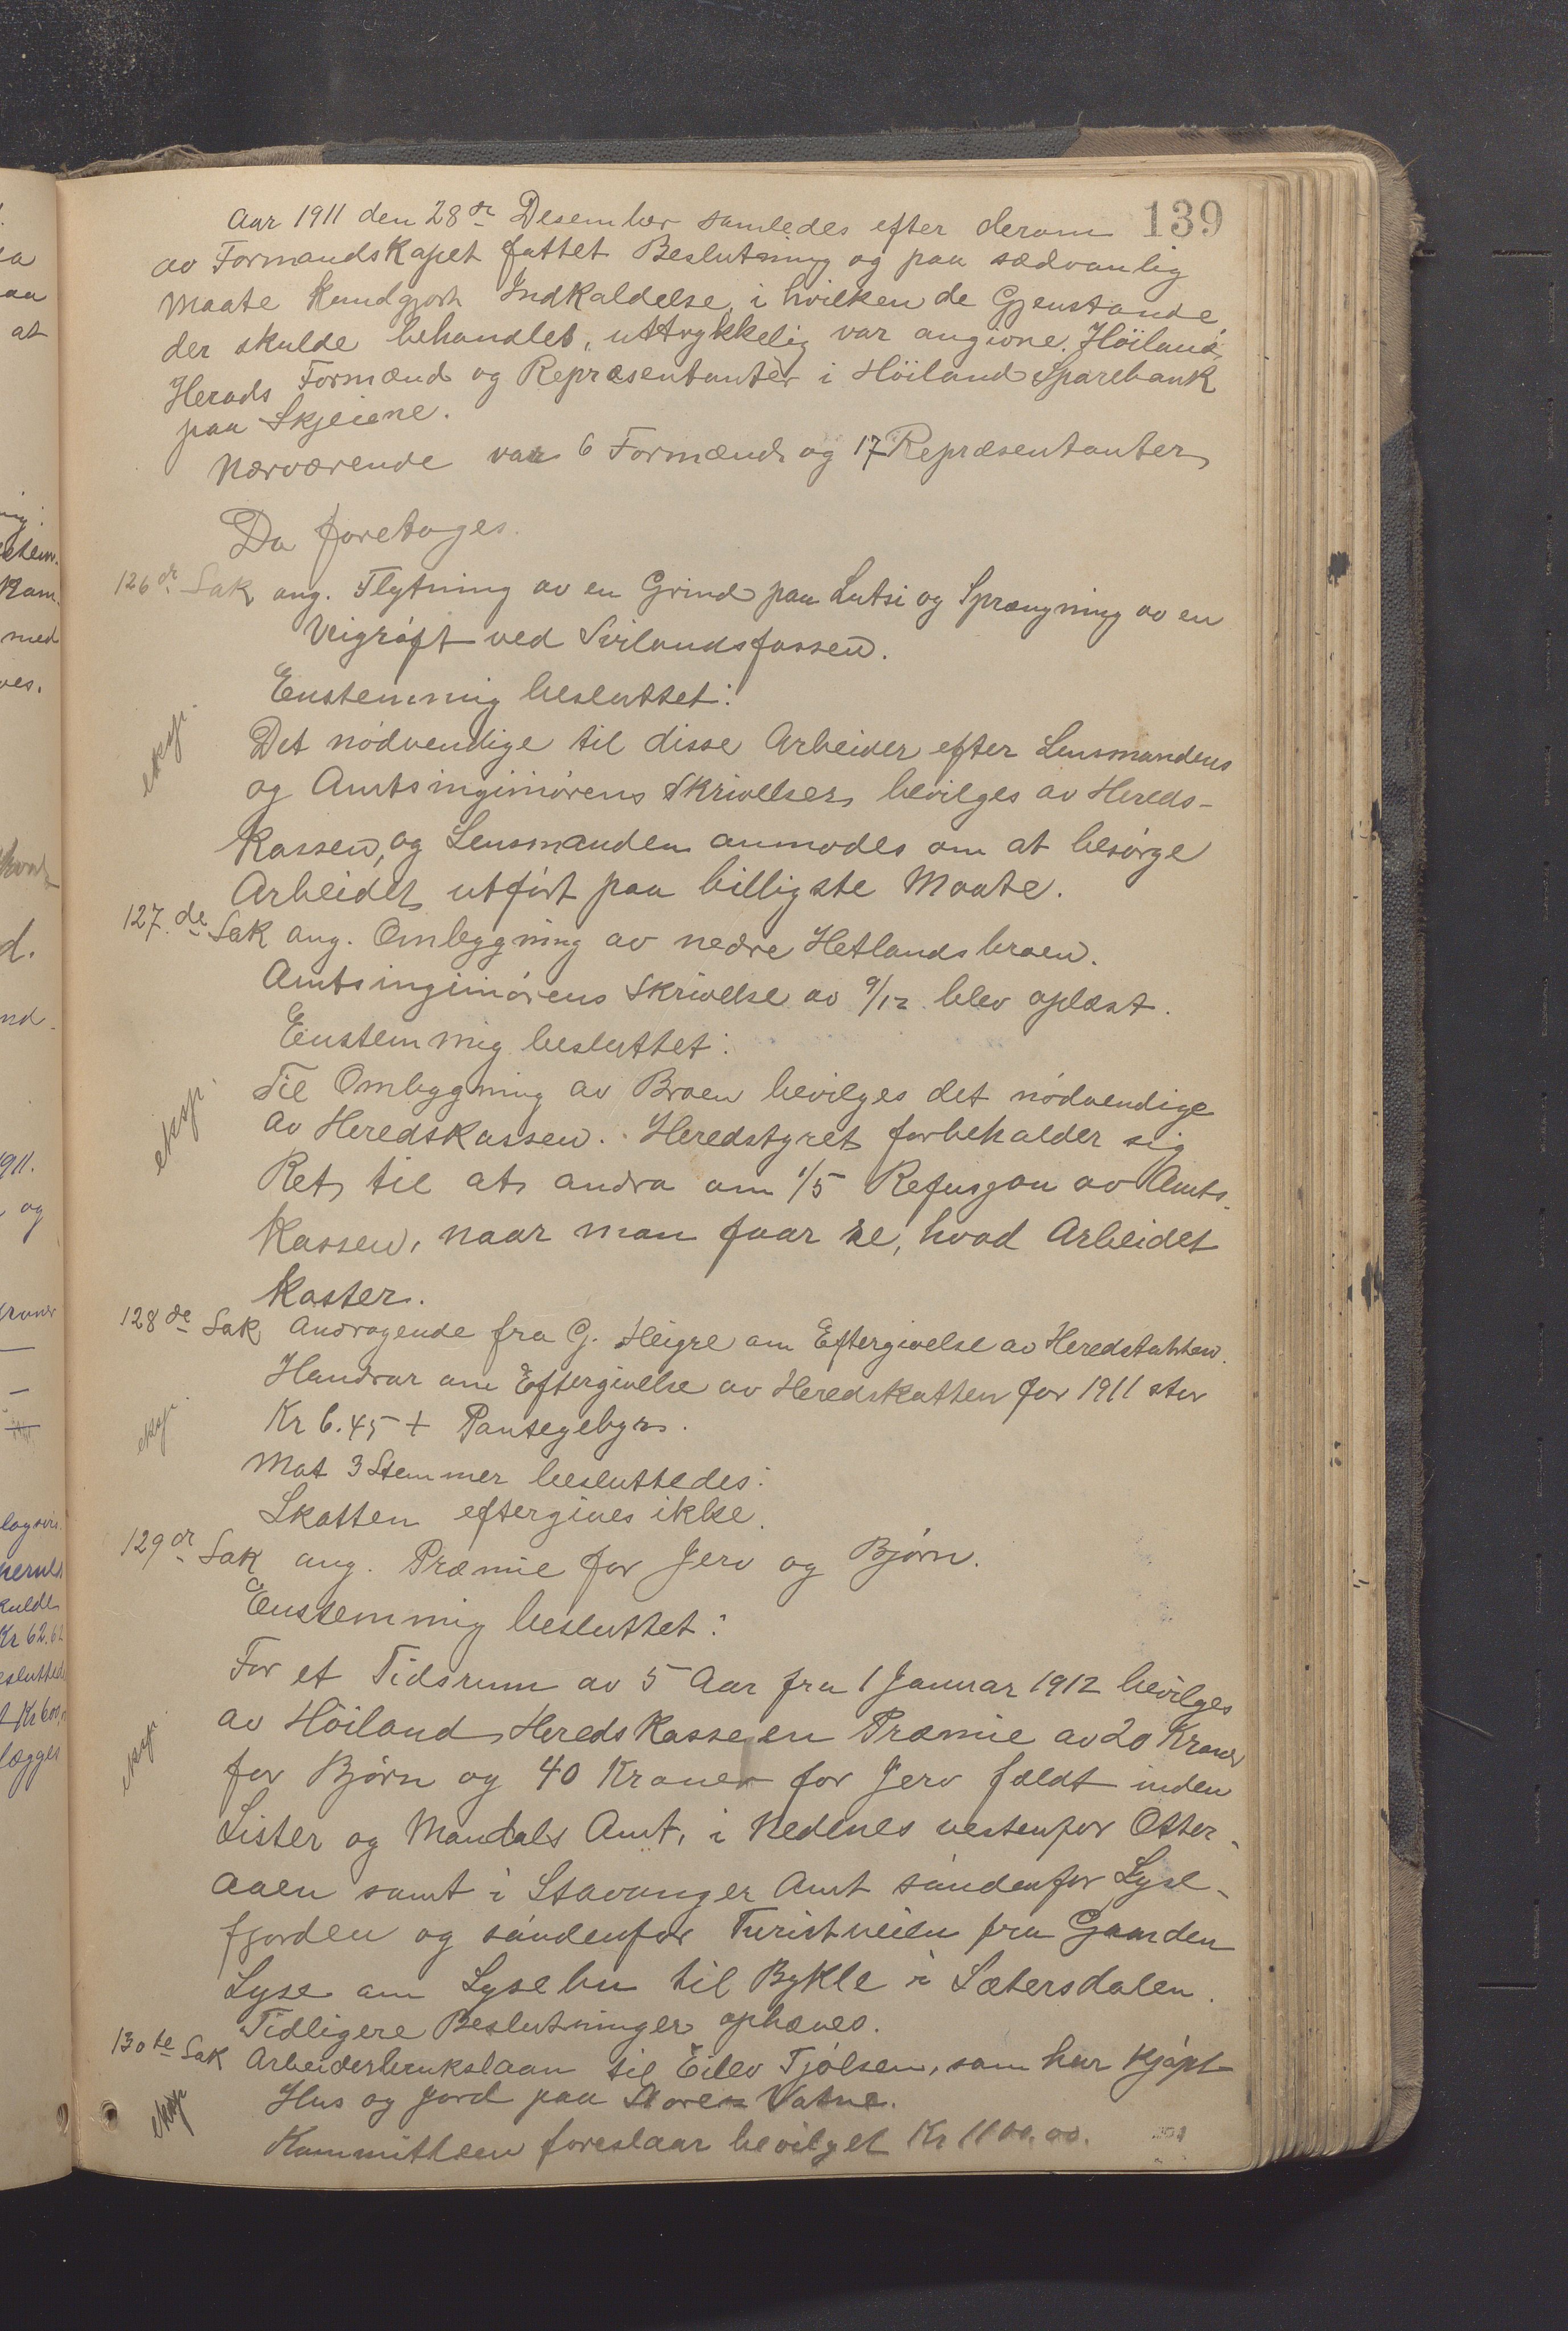 139
Aar 1911 den 28de Desember samledes efter derom
av Formandskapet fattet Beslutning og paa sædvanlig
Maate kundgjort Indkaldelse, i hvilken de Gjenstande,
der skulde behandles, uttrykkelig var angivne, Høiland
Herads Formænd og Repræsentanter i Höiland Sparebank
paa Skjeiene.
Nærværende var 6 Formænd og 17 Repræsentanter
Da foretoges.
126de Sak ang. Flytning av en Grind paa Lutsi og Sprængning av en
Veigrøft ved Svilandsfossen.
Enstemmig besluttet:
eksp.
Det nödvendige til disse Arbeider efter Lensmandens
og Amtsinginiörens Skrivelser bevilges av Hereds-
kassen, og Lensmanden anmodes om at besörge
Arbeidet utfört paa billigste Maate.
127.de Sak ang. Ombygning av nedre Hetlandsbroen.
Amtsinginiörens Skrivelse av 9/12 blev oplæst.
Enstemmig besluttet:
eksp.
Til Ombygning av Broen bevilges det nödvendige
av Heredskassen. Heredstyret forbeholder sig
Ret til at andra om 1/5 Refusjon av Amts-
kassen, naar man faar se, hvad Arbeidet
koster.
128de Sak Andragende fra G. Heigre om Eftergivelse av Heredskatten.
Handrar om Eftergivelse av Heredskatten for 1911 stor
eksp.
Kr 6.45 + Pantegebyr.
Mot 3 Stemmer besluttedes:
Skatten eftergives ikke.
129de Sak ang. Præmie for Jerv og Bjørn.
Enstemmig besluttet:
For et Tidsrum av 5 Aar fra 1 Januar 1912 bevilges
eksp.
av Höiland Heredskasse en Præmie av 20 Kroner
for Bjørn og 40 Kroner for Jerv fældt inden
Lister og Mandals Amt, i Nedenes vestenfor Otter-
aaen samt i Stavanger Amt söndenfor Lyse-
fjorden og söndenfor Turistveien fra Gaarden
Lyse om Lysebu til Bykle i Sætersdalen.
Tidligere Beslutninger ophæves.
130te Sak Arbeiderbrukslaan til Eilev Tjölsen, som har kjöpt
eksp
Hus og Jord paa Store Vatne.
Kommitteen foreslaar bevilget Kr 1100.00.